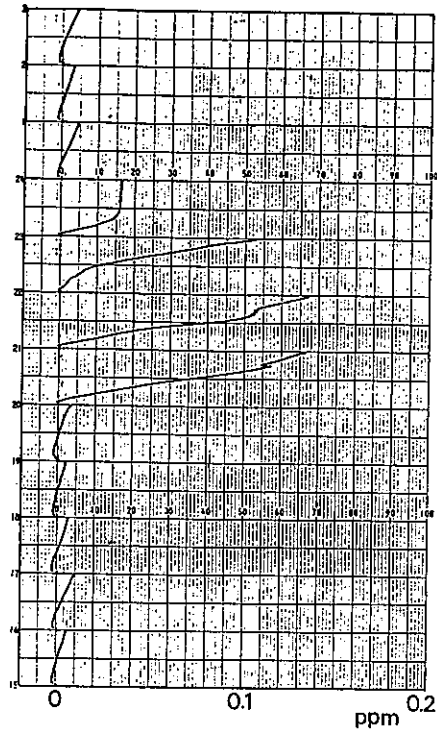 3
2
1
0 10 20 30 40 50 60 70 80 90 100
24
23
22
21
20
19
0 10 20 30 40 50 60 70 80 90 100
18
17
16
15
0 0.1 0.2
ppm